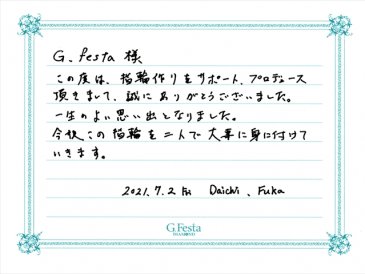 G.festa 様
この度は、指輪作りをサポート、プロデュース
頂きまして、誠にありがとうございました。
一生のよい思い出となりました。
今後この指輪を二人で大事に身に付けて
いきます。
2021.7.2 Fri Daichi、Fuka
G.Festa
DIAMOND